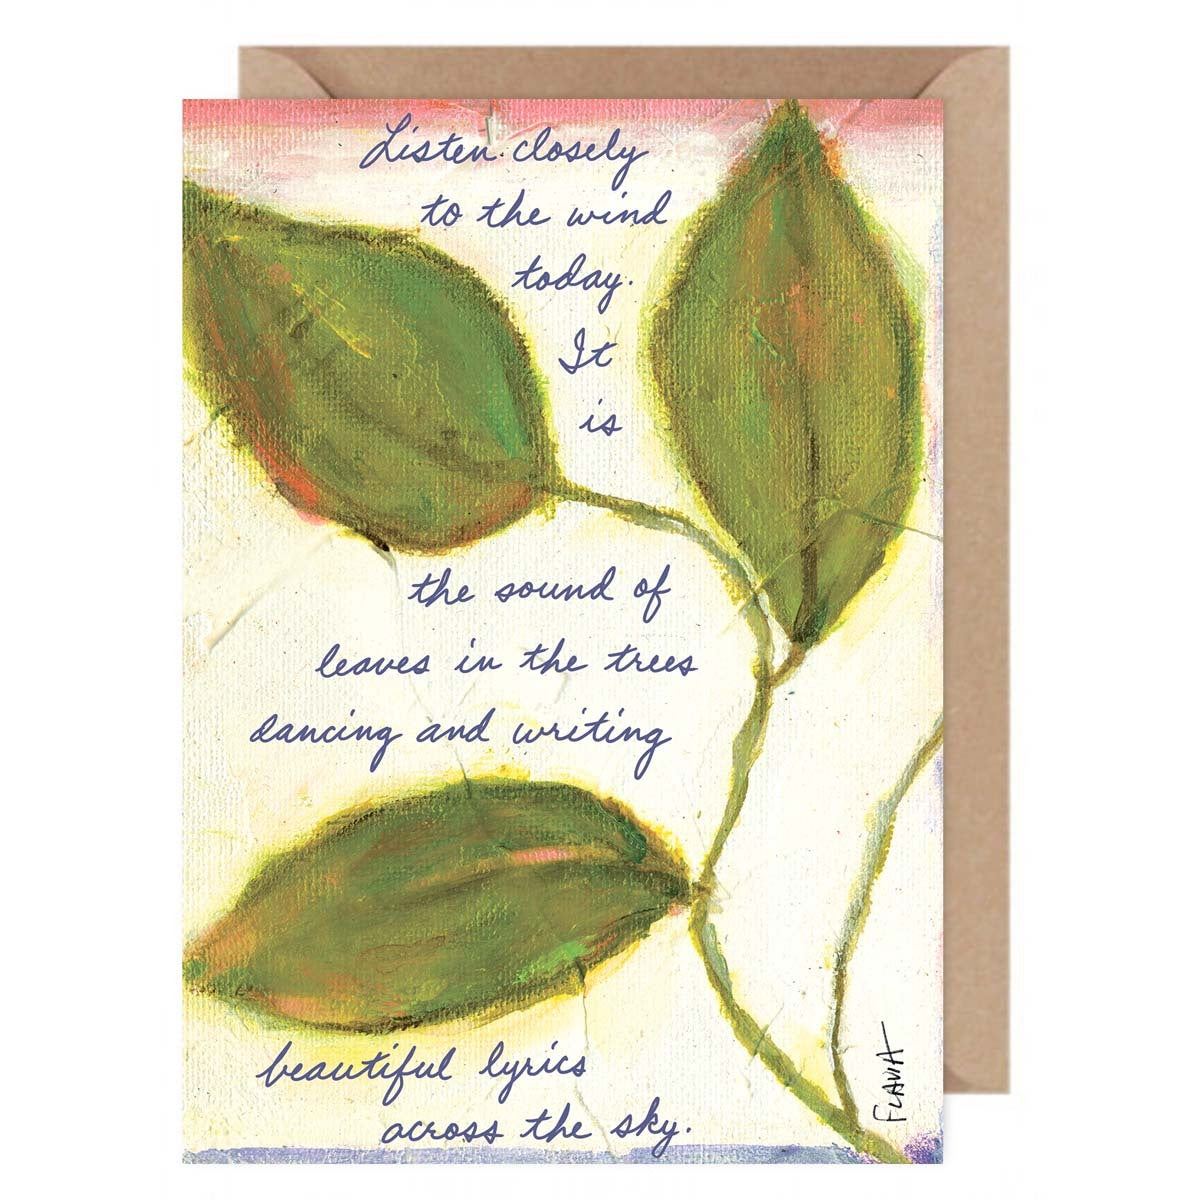 Listen closely
to the wind
today.
It
is
the sound of
leaves in the trees
dancing and writing
beautiful lyrics
across the sky.
FLAVIA